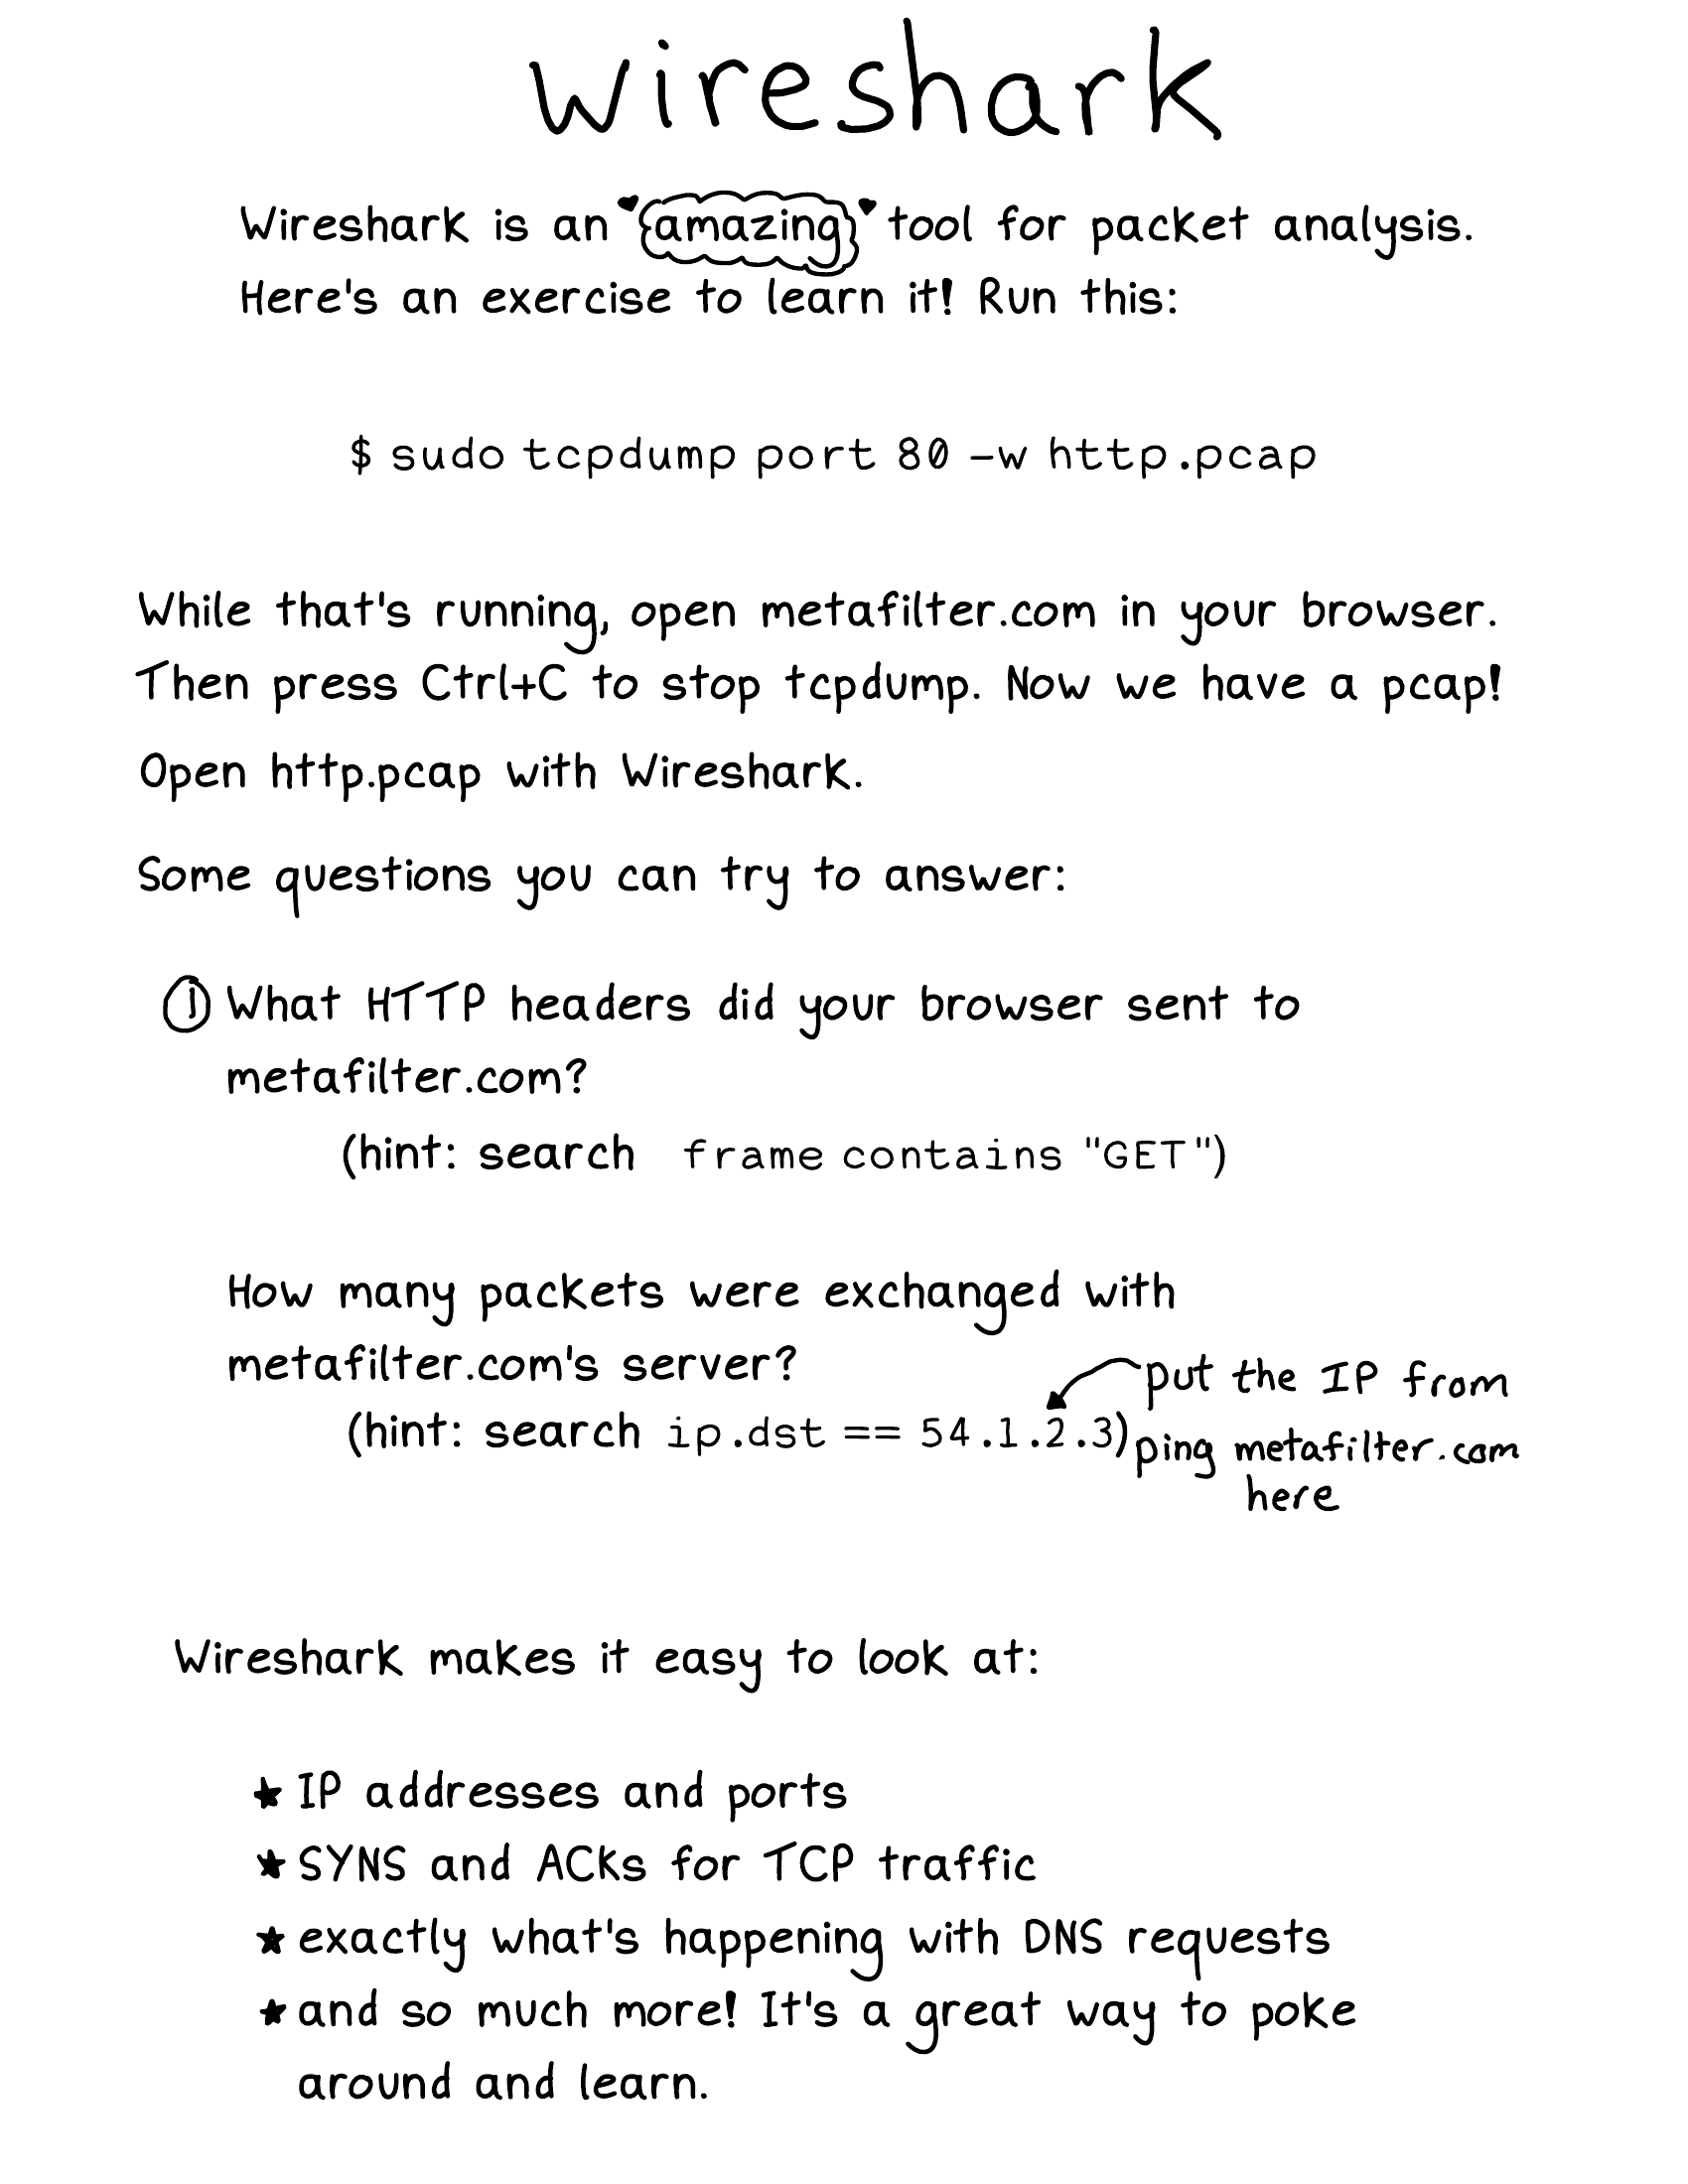 wireshark
Wireshark is an amazing tool for packet analysis.
Here's an exercise to learn it! Run this:
$ sudo tcpdump port 80 -w http.pcap
While that's running, open metafilter.com in your browser.
Then press Ctrl+C to stop tcpdump. Now we have a pcap!
Open http.pcap with Wireshark.
Some questions you can try to answer:
① What HTTP headers did your browser sent to
metafilter.com?
(hint: search frame contains "GET")
How many packets were exchanged with
metafilter.com's server?
(hint: search ip.dst == 54.1.2.3)
put the IP from
ping metafilter.com
here
Wireshark makes it easy to look at:
★ IP addresses and ports
★ SYNS and ACKs for TCP traffic
★ exactly what's happening with DNS requests
★ and so much more! It's a great way to poke
around and learn.